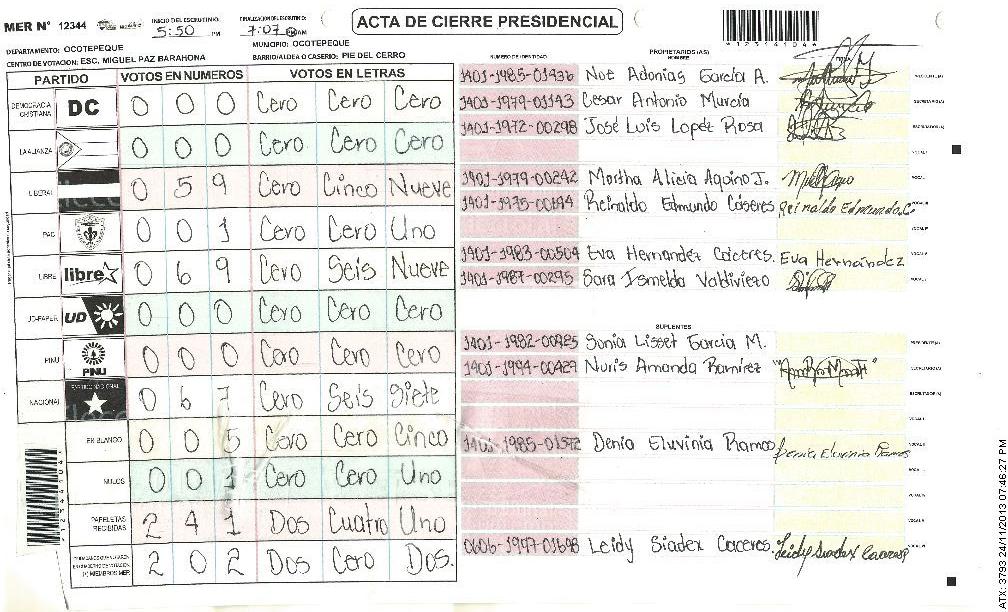 ACTA DE CIERRE PRESIDENCIAL
MER N° 12344
INICIO DEL ESCRUTINIO: 5:50 PM
FINALIZACION DEL ESCRUTINIO: 7:07 PM
DEPARTAMENTO: OCOTEPEQUE
MUNICIPIO: OCOTEPEQUE
CENTRO DE VOTACION: ESC. MIGUEL PAZ BARAHONA
BARRIO/ALDEA O CASERIO: PIE DEL CERRO
PARTIDO VOTOS EN NUMEROS VOTOS EN LETRAS
DEMOCRACIA CRISTIANA DC 0 0 0 Cero Cero Cero
LA ALIANZA 0 0 0 Cero Cero Cero
LIBERAL 0 5 9 Cero Cinco Nueve
PAC 0 0 1 Cero Cero Uno
LIBRE libre 0 6 9 Cero Seis Nueve
UD-FAPER UD 0 0 0 Cero Cero Cero
PINU PINU 0 0 0 Cero Cero Cero
NACIONAL PARTIDO NACIONAL 0 6 7 Cero Seis Siete
EN BLANCO 0 0 5 Cero Cero Cinco
NULOS 0 0 1 Cero Cero Uno
PAPELETAS RECIBIDAS 2 4 1 Dos Cuatro Uno
2 0 2 Dos Cero Dos.
NUMERO DE IDENTIDAD PROPIETARIOS (AS) NOMBRE
1401-1985-01436 Noe Adonias García A. PRESIDENTE (A)
1401-1979-01143 Cesar Antonio Murcía SECRETARIO (A)
1401-1972-00298 José Luis Lopéz Rosa ESCRUTADOR (A)
VOCAL I
1401-1979-00242 Martha Alicia Aquino J. VOCAL
1401-1975-00194 Reinaldo Edmundo Cáseres Reinaldo Edmundo.C. VOCAL
VOCAL
1401-1983-00504 Eva Hernandez Caceres. Eva Hernández VOCAL
1401-1987-00295 Sara Ismelda Valdiviezo VOCAL
SUPLENTES
1401-1982-00925 Sonia Lisset Garcia M. PRESIDENTE (A)
1401-1994-00429 Nuris Amanda Ramírez SECRETARIO (A)
ESCRUTADOR (A)
VOCAL I
1401-1985-01372 Denia Eluvinia Ramos Denia Eluvinia Ramos VOCAL
VOCAL
VOCAL
VOCAL
0606-1997-01698 Leidy Siadex Caceres. Leidy Siadex Caceres VOCAL
ATX: 3793 24/11/2013 07:46:27 PM